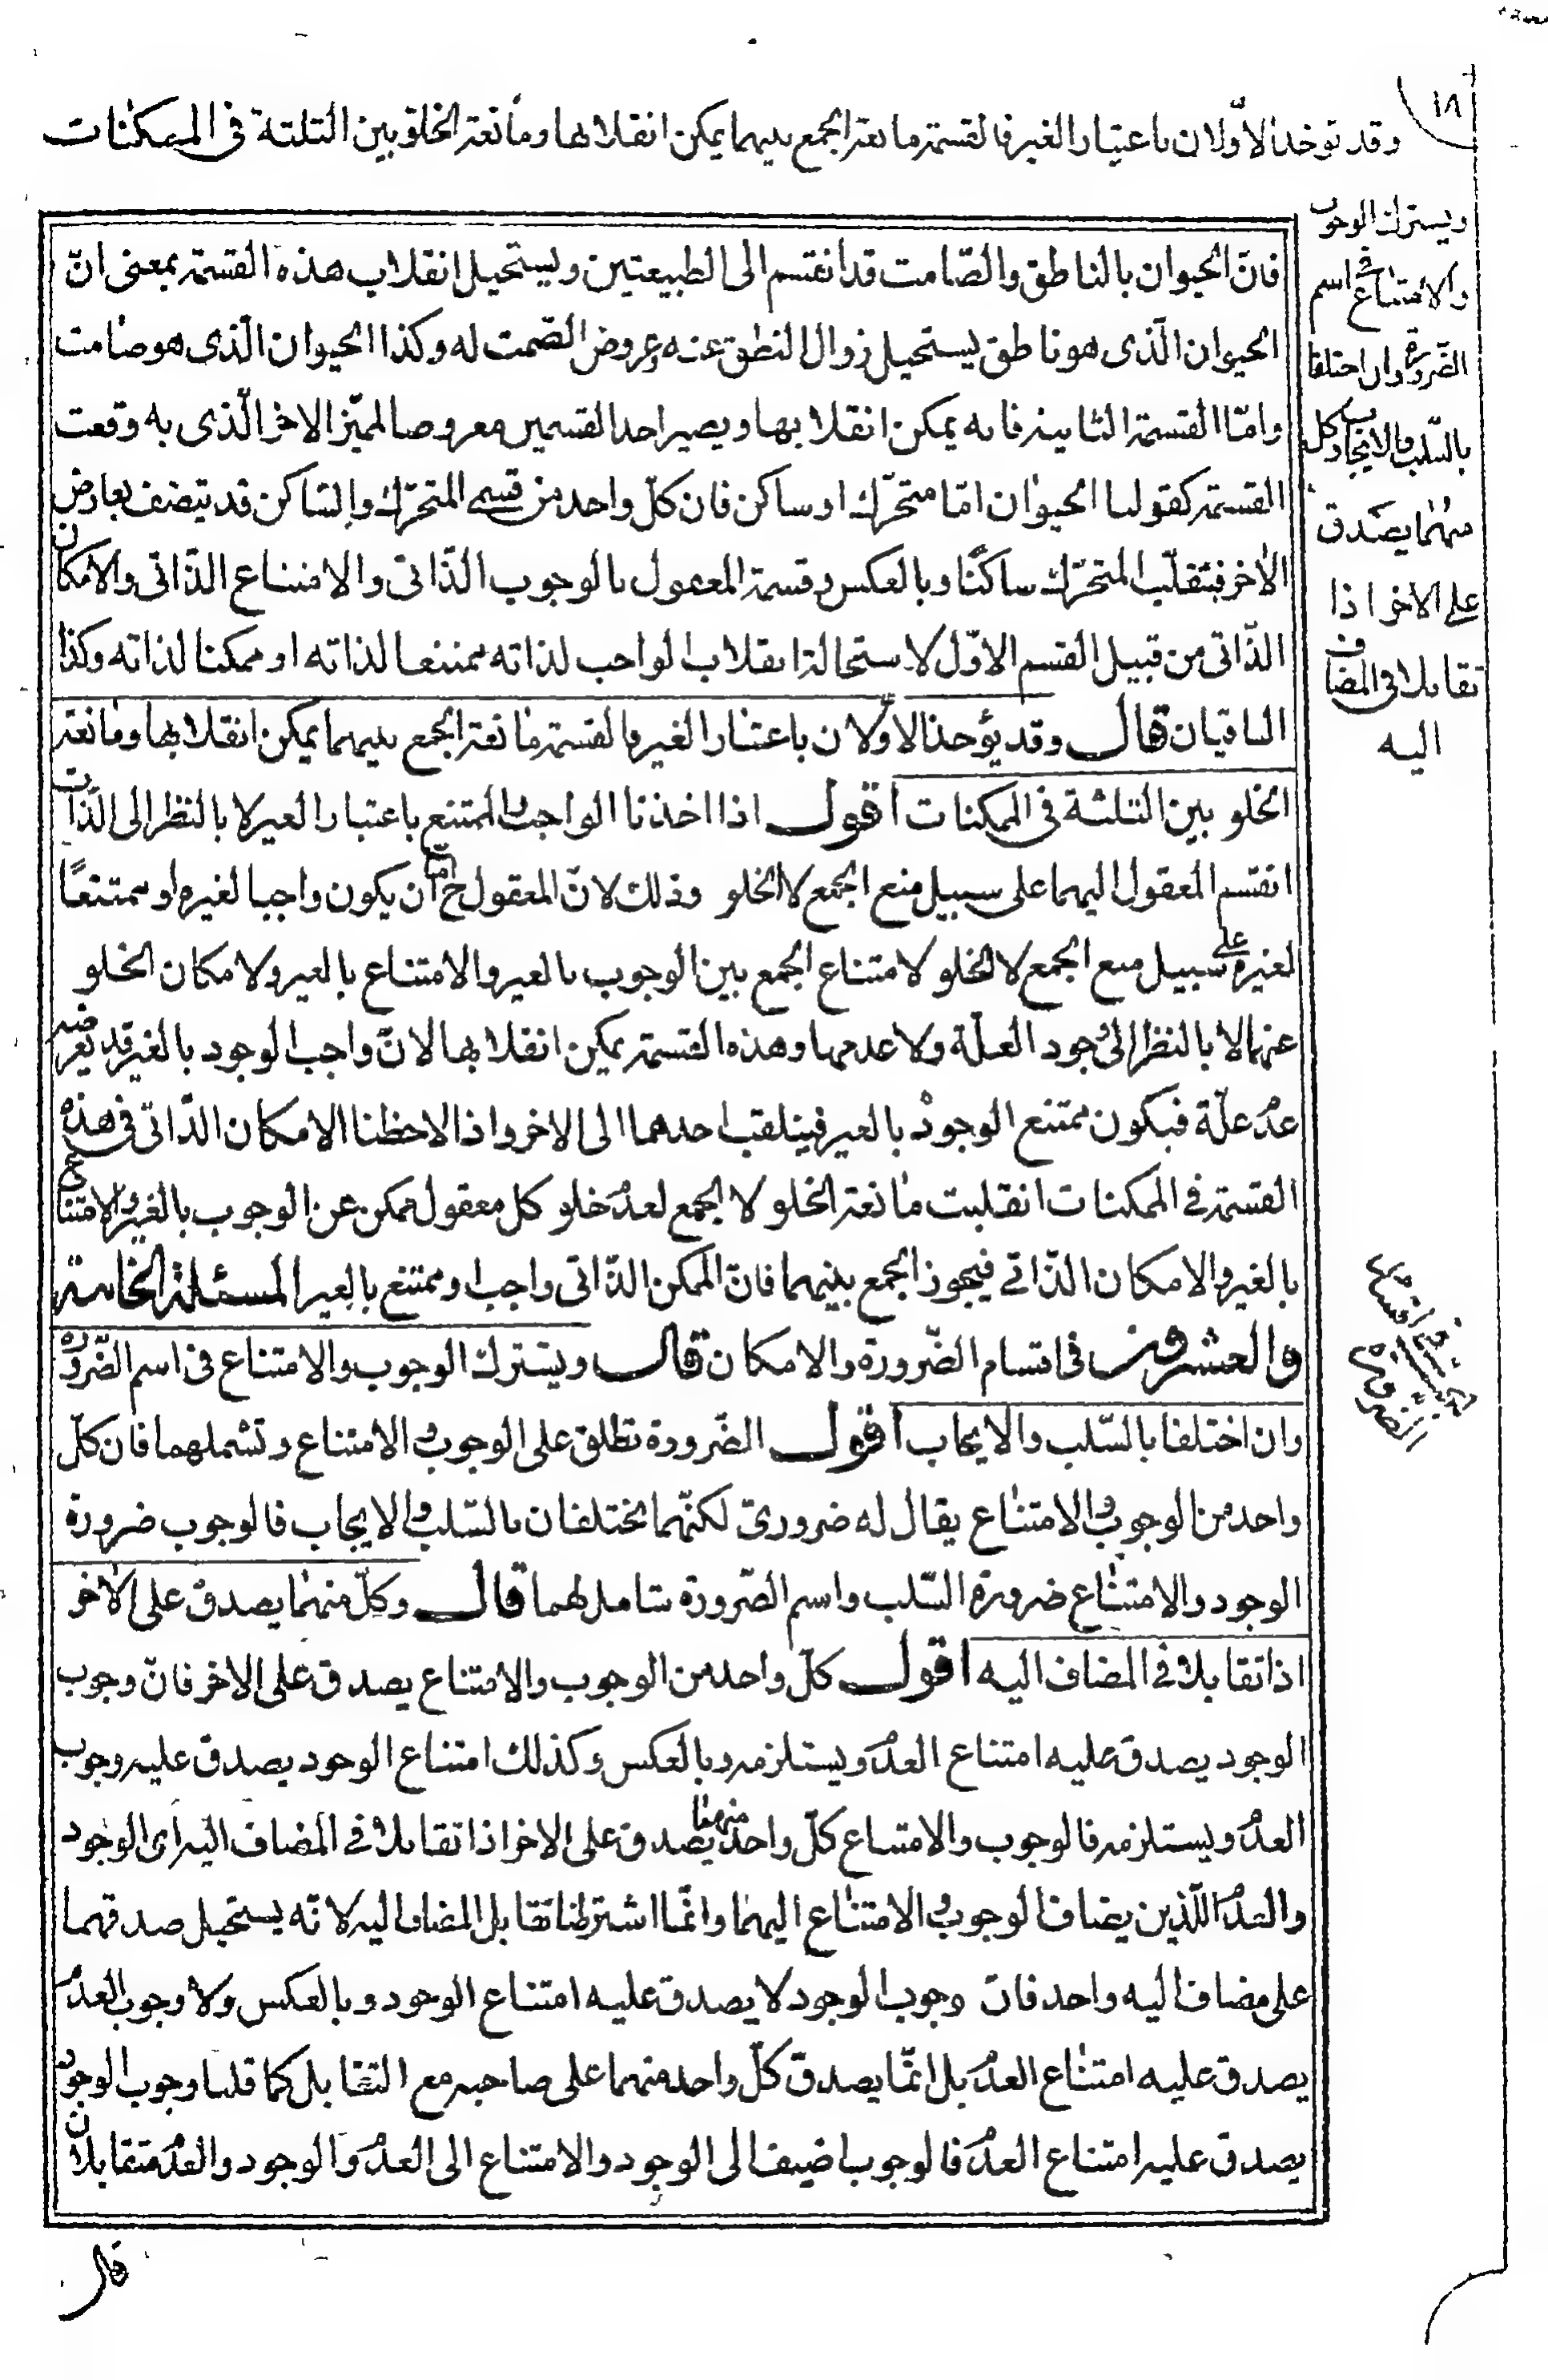 ١٨
وقد توخذ الاوّلان باعتبار الغير فالقسمة مانعة الجمع بينهما يمكن انقلابها ومانعة الخلو بين الثلثة فى الممكنات
ويشترك الوجوب
والامتناع فى اسم
الضّرورة وان اختلفا
بالسّلب والايجاب وكل
منهما يصدق
على الاخر اذا
تقابلا فى المضاف
اليه
فانّ الحيوان بالناطق والصّامت قد انقسم الى الطبيعتين ويستحيل انقلاب هذه القسمة بمعنى انّ
الحيوان الّذى هو ناطق يستحيل زوال النطق عنه وعروض الصّمت له وكذا الحيوان الّذى هو صامت
وامّا القسمة الثانية فانه يمكن انقلابها ويصير احد القسمين معروضا لمميّز الاخر الّذى به وقعت
القسمة كقولنا الحيوان امّا متحرّك او ساكن فان كلّ واحد من قسمى المتحرّك والسّاكن قد يتصف بعارض
الاخر فينقلب المتحرّك ساكنًا وبالعكس وقسمة المعقول بالوجوب الذّاتى والامتناع الذّاتى والامكان
الذّاتى من قبيل القسم الاوّل لاستحالة انقلاب الواجب لذاته ممتنعا لذاته او ممكنا لذاته وكذا
الباقيان قال وقد يؤخذ الاوّلان باعتبار الغير فالقسمة مانعة الجمع بينهما يمكن انقلابها ومانعة
الخلو بين الثلثة فى الممكنات اقول اذا اخذنا الواجب والممتنع باعتبار الغير لا بالنظر الى الذّات
انقسم المعقول اليهما على سبيل منع الجمع لا الخلو وذلك لانّ المعقول ح امّا ان يكون واجبا لغيره او ممتنعًا
لغيره على سبيل منع الجمع لا الخلو لامتناع الجمع بين الوجوب بالغير والامتناع بالغير ولامكان الخلو
عنهما لا بالنظر الى وجود العلّة ولا عدمها وهذه القسمة يمكن انقلابها لانّ واجب الوجود بالغير قد يعرضه
عدم علّة فيكون ممتنع الوجود بالغير فينلقب احدهما الى الاخر واذا لاحظنا الامكان الذّاتى فى هذه
القسمة فى الممكنات انقلبت مانعة الخلو لا الجمع لعدم خلو كل معقول ممكن عن الوجوب بالغير والامتناع
بالغير والامكان الذّاتى فيجوز الجمع بينهما فانّ الممكن الذّاتى واجب او ممتنع بالغير المسئلة الخامسة
والعشرون فى اقسام الضّرورة والامكان قال ويشترك الوجوب والامتناع فى اسم الضّرورة
وان اختلفا بالسّلب والايجاب اقول الضّرورة تطلق على الوجوب والامتناع وتشملهما فان كلّ
واحد من الوجوب والامتناع يقال له ضرورىّ لكنّهما يختلفان بالسّلب والايجاب فالوجوب ضرورة
الوجود والامتناع ضرورة السّلب واسم الضّرورة شامل لهما قال وكلّ منهما يصدق على الاخر
اذا تقابلا فى المضاف اليه اقول كلّ واحد من الوجوب والامتناع يصدق على الاخر فانّ وجوب
الوجود يصدق عليه امتناع العدم ويستلزمه وبالعكس وكذلك امتناع الوجود يصدق عليه وجوب
العدم ويستلزمه فالوجوب والامتناع كلّ واحد منهما يصدق على الاخر اذا تقابلا فى المضاف اليه اى الوجود
والعدم اللّذين يضاف الوجوب والامتناع اليهما وانّما اشترطنا تقابل المضاف اليه لانّه يستحيل صدقهما
على مضاف اليه واحد فانّ وجوب الوجود لا يصدق عليه امتناع الوجود وبالعكس ولا وجوب العدم
يصدق عليه امتناع العدم بل انّما يصدق كلّ واحد منهما على صاحبه مع التقابل كما قلنا وجوب الوجود
يصدق عليه امتناع العدم فالوجوب اضيف الى الوجود والامتناع الى العدم والوجود والعدم متقابلان
قال